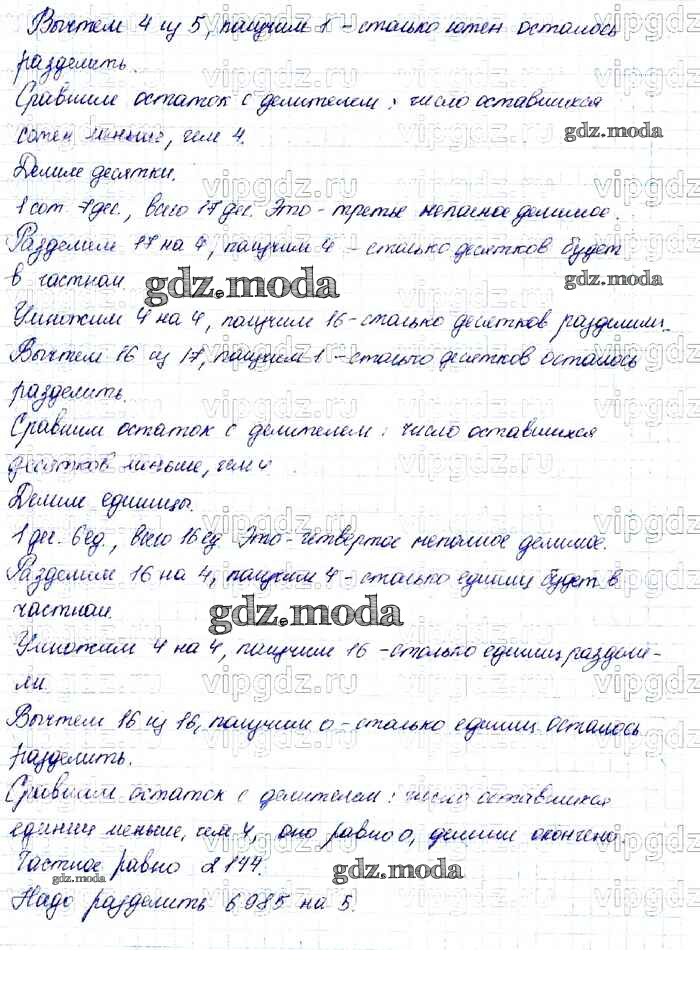 Вычтем 4 из 5, получим 1 - столько сотен осталось
разделить.
Сравним остаток с делителем: число оставшихся
сотен меньше, чем 4.
gdz.moda
Делим десятки.
1 сот. 7 дес., всего 17 дес. Это - третье неполное делимое.
Разделим 17 на 4, получим 4 - столько десятков будет
в частном
gdz.moda
Умножим 4 на 4, получим 16 - столько десятков разделили.
Вычтем 16 из 17, получим 1 - столько десятков осталось
разделить.
Сравним остаток с делителем: число оставшихся
десятков меньше, чем 4
Делим единицы.
1 дес. 6 ед., всего 16 ед. Это - четвертое неполное делимое.
Разделим 16 на 4, получим 4 - столько единиц будет в
частном.
gdz.moda
Умножим 4 на 4, получим 16 - столько единиц раздели-
ли.
Вычтем 16 из 16, получим 0 - столько единиц осталось
разделить.
Сравним остаток с делителем: число оставшихся
единиц меньше, чем 4, оно равно 0, делили окончено.
Частное равно 2144.
gdz.moda
gdz.moda
Надо разделить 6985 на 5.
vipgdz.ru